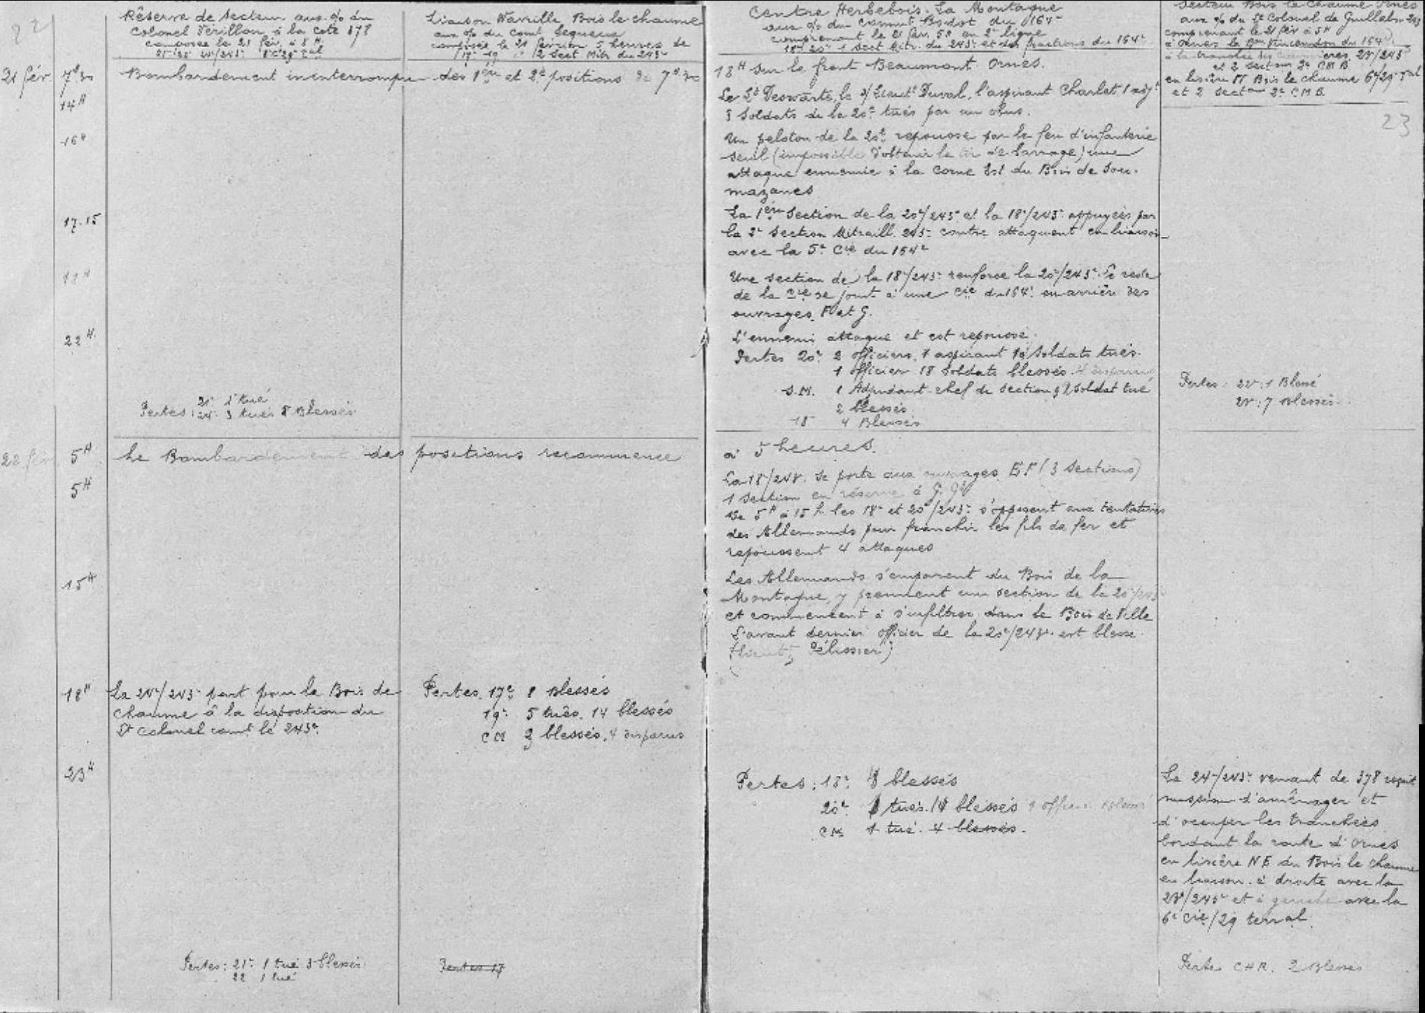 22
Réserve de Secteur aux o/o du
Colonel Vérillon, à la cote 378
composée le 21 fév. à 5H
21e 22e 24e/243e
Liaison Wavrille Bois le chaume
aux o/o du Comt
composée le 21 février 5 heures de
17e 19e 2 Sect Mitr du 243e
21 fév 7H30 Bombardement ininterrompu des 1ères et 2e positions de 7H30
14H
16H
17.15
22H.
Pertes: 21e 1 tué
24e 3 tués 8 Blessés
5H Le Bombardement des positions recommence
5H
15H
18H La 24e/243e part pour le Bois de
chaume à la disposition du
Lt Colonel comt le 243e.
Pertes. 17e 8 Blessés
19e 5 tués. 14 blessés
CM 3 blessés, 4 disparus
23H
Pertes: 21e 1 tué 3 blessés
22 1 tué
Pertes 17
Centre Herbebois. La Montagne
aux o/o du Commt du 164e
comprenant le 21 fév. 5H en 2e ligne
18e 20e 1 sect Mitr. du 243e et des fractions du 164e
18H sur le front Beaumont Ornes.
Le Lt Deswarte, le s/Lieutt Duval, l'aspirant Charlet 1 adjt
3 Soldats de la 20e tués par un obus.
Un peloton de la 20e repousse par le feu d'infanterie
seul (impossible d'obtenir le tir de barrage) une
attaque ennemie à la Corne Est du Bois de Sou-
mazannes
La 1ère Section de la 20e/243e et la 18e/243e appuyées par
la 2e Section Mitraill. 243e contre attaquent en liaison
avec la 5e Cie du 164e
Une section de la 18e/243e renforce la 20e/243e. Le reste
de la Cie se joint à une Cie du 164e en arrière des
ouvrages F et G.
L'ennemi attaque et est repoussé.
Pertes 20e 2 officiers, 1 aspirant soldats tués.
1 officier 18 Soldats blessés
S.M. 1 Adjudant-chef de Section Soldat tué
2 blessés
18 4 Blessés
à 5 heures.
La 18/243e. Se porte aux ouvrages E F (3 Sections)
1 Section en réserve à G.
De 5H à 15h. les 18e et 20e/243e s'opposent aux tentatives
des Allemands pour franchir les fils de fer et
repoussent 4 attaques
Les Allemands s'emparent du Bois de la
Montagne, y prennent une section de la 20e/243e
et commencent à s'infiltrer dans le Bois de Ville
L'avant dernier officier de la 20e/243e est blessé
(Lieutt Pélissier)
Pertes: 18e 8 blessés
20e tués. 14 blessés 1 officier blessé
CM 1 tué 4 blessés.
Secteur Bois le Chaume Ornes
aux o/o du Lt Colonel
comprenant le 21 fév à 5H
à Ornes le Bon du 164e
et 2 sections 2e C.M.B
en lisière N. Bois le chaume 6e/29e Tal
et 2 Sectons 2e C.M.B.
23
Pertes: 22e: 1 Blessé
23e: 7 Blessés.
La 24e/243e venant de 378 reçoit
mission d'aménager et
d'occuper les tranchées
bordant la route d'Ornes
en lisière NE du Bois le chaume
en liaison à droite avec la
23e/243e et à gauche avec la
6e Cie/29 terral.
Pertes C.H.R. 2 Blessés